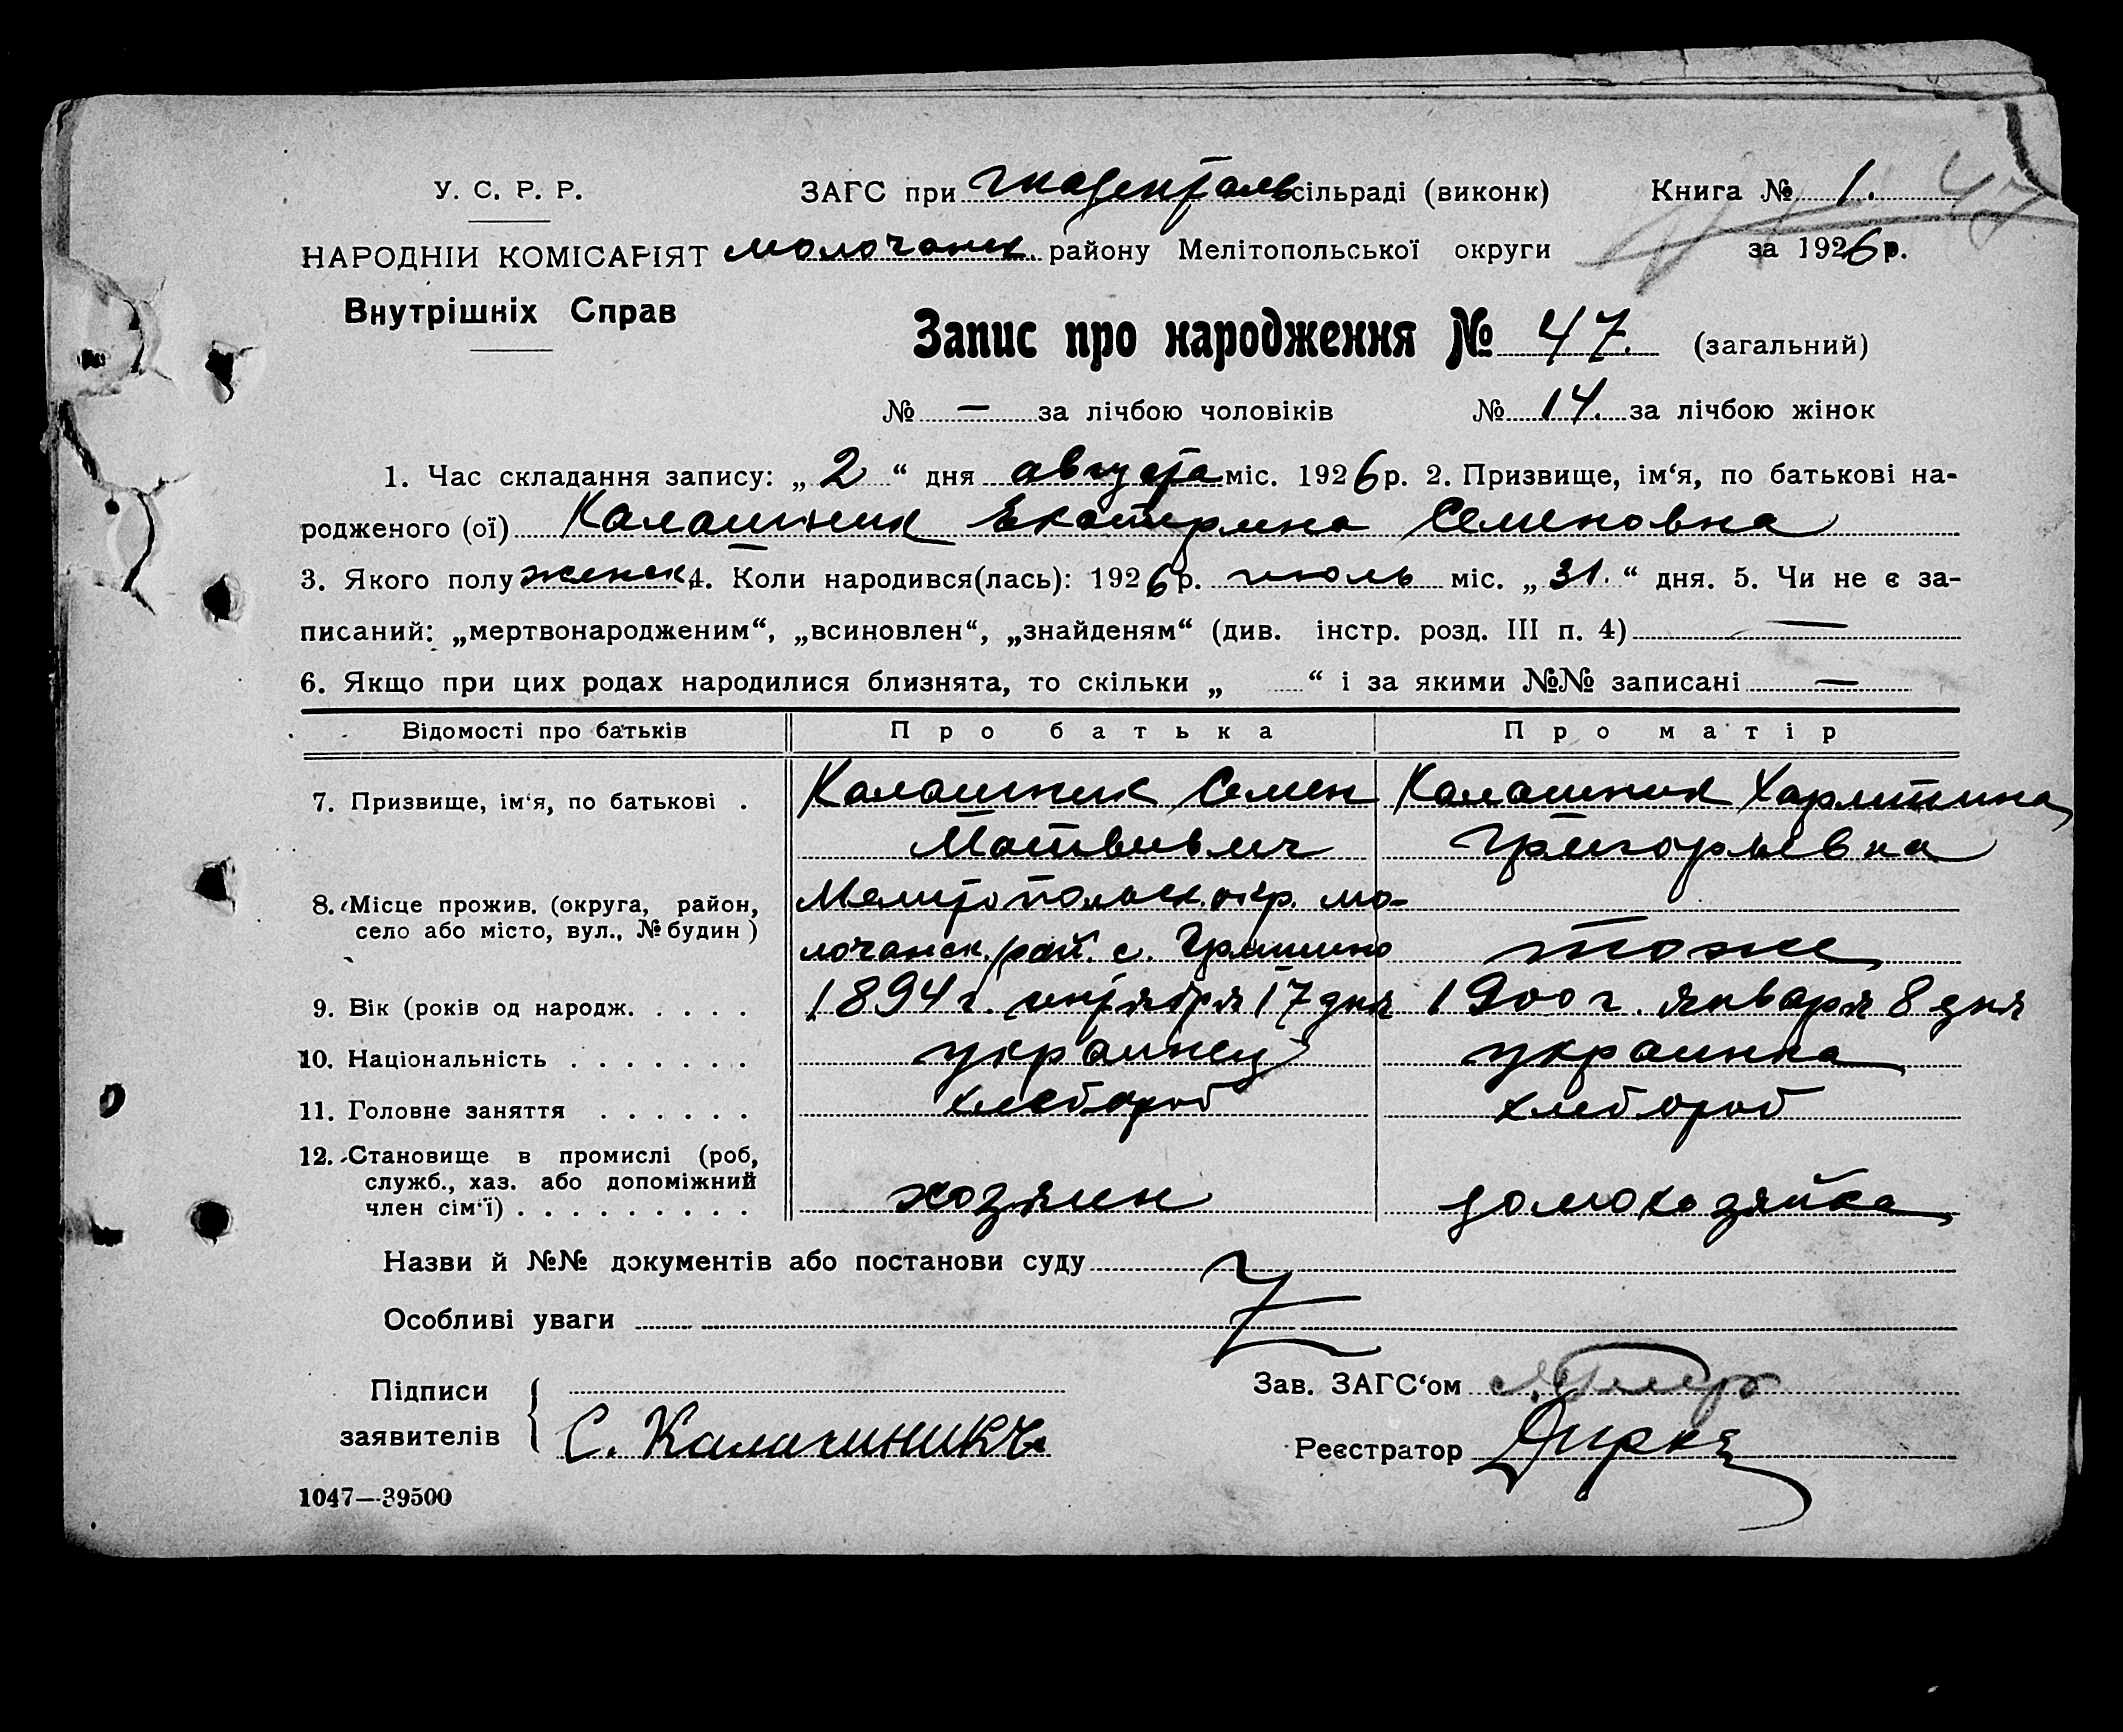 У. С. Р. Р. ЗАГС при Гнадентальс сільраді (виконк) Книга № 1. 47
НАРОДНІЙ КОМІСАРІЯТ Молочанск. району Мелітопольської округи за 1926 р.
Внутрішніх Справ
Запис про народження № 47. (загальний)
№ — за лічбою чоловіків № 14. за лічбою жінок
1. Час складання запису: „ 2 “ дня августа міс. 1926 р. 2. Призвище, ім‘я, по батькові на-
родженого (ої) Калашник Екатерина Семеновна
3. Якого полу женск. 4. Коли народився(лась): 1926 р. июль міс. „ 31. “ дня. 5. Чи не є за-
писаний: „мертвонародженим“, „всиновлен“, „знайденям“ (див. інстр. розд. III п. 4) —
6. Якщо при цих родах народилися близнята, то скільки „ “ і за якими №№ записані —
Відомості про батьків Про батька Про матір
7. Призвище, ім‘я, по батькові . Калашник Семен Калашник Харитина
Матвеевич Григорьевна
8. Місце прожив. (округа, район, Мелитопольск. окр. мо-
село або місто, вул., № будин) лочанск. рай. с. Гришино тоже
9. Вік (років од народж. . . . . 1894 г. 17 дня 1900 г. января 8 дня
10. Національність . . . . . . . украинец украинка
11. Головне заняття . . . . . . хлебороб хлебороб
12. Становище в промислі (роб,
служб., хаз. або допоміжний
член сім‘ї) . . . . . . . . . хозяин домохозяйка
Назви й №№ документів або постанови суду
Особливі уваги
Підписи Зав. ЗАГС‘ом
заявителів С. Реєстратор Дирке
1047—39500